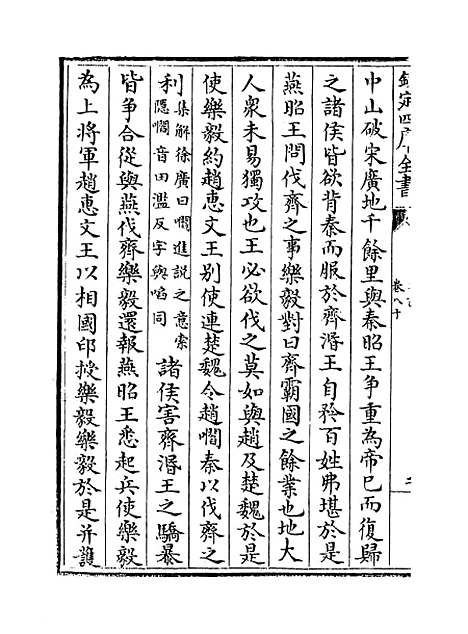 欽定四庫全書
卷八十
二
中山破宋廣地千餘里與秦昭王爭重為帝已而復歸
之諸侯皆欲背秦而服於齊湣王自矜百姓弗堪於是
燕昭王問伐齊之事樂毅對曰齊霸國之餘業也地大
人衆未易獨攻也王必欲伐之莫如與趙及楚魏於是
使樂毅約趙惠文王别使連楚魏令趙嚪秦以伐齊之
利集解徐廣曰嚪進説之意索
隱嚪音田濫反字與啗同
諸侯害齊湣王之驕暴
皆爭合從與燕伐齊樂毅還報燕昭王悉起兵使樂毅
為上將軍趙惠文王以相國印授樂毅樂毅於是并護